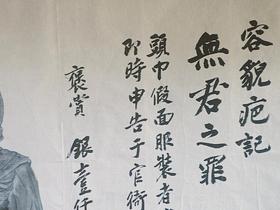 容貌疤記
無君之罪
頭巾假面服裝者
即時申告于官衙
褒賞 銀壹仟